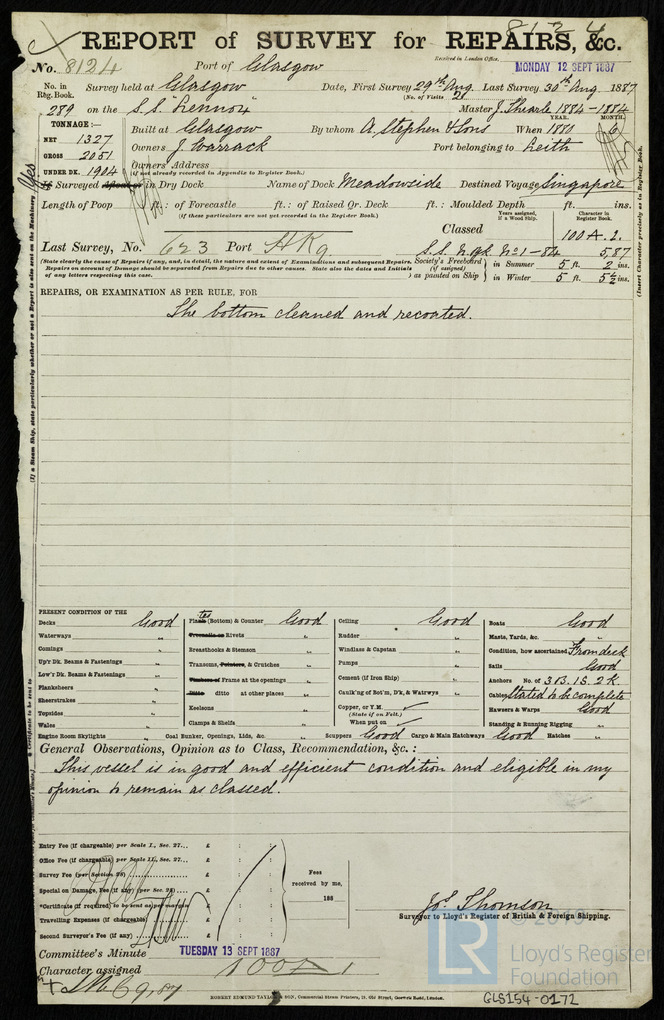 8124
REPORT of SURVEY for REPAIRS, &c.
Received in London Office.
No. 8124 Port of Glasgow MONDAY 12 SEPT 1887
No. in Reg. Book. Survey held at Glasgow Date, First Survey 29th Aug. Last Survey 30th Aug. 1887
(No. of Visits 2)
289 on the S.S. "Lennox" Master J. Shearle 1884-1884
YEAR. MONTH.
TONNAGE:—
NET 1327
GROSS 2051
UNDER DK. 1904
Built at Glasgow By whom A. Stephen & Sons When 1880 6
Owners J. Warrack Port belonging to Leith
Owners' Address
(if not already recorded in Appendix to Register Book.)
If Surveyed Afloat or in Dry Dock Name of Dock Meadowside Destined Voyage Singapore
Length of Poop ft.: of Forecastle ft.: of Raised Qr. Deck ft.: Moulded Depth ft. ins.
(if these particulars are not yet recorded in the Register Book.)
Years assigned, if a Wood Ship. Character in Register Book.
Classed 100A.1.
Last Survey, No. 623 Port H Kg.
S.S. No1-84 5,87
(State clearly the cause of Repairs if any, and, in detail, the nature and extent of Examinations and subsequent Repairs.
Repairs on account of Damage should be separated from Repairs due to other causes. State also the dates and Initials
of any letters respecting this case.
Society's Freeboard (if assigned) as painted on Ship
in Summer 5 ft. 2 ins.
in Winter 5 ft. 5½ ins.
REPAIRS, OR EXAMINATION AS PER RULE, FOR
The bottom cleaned and recoated.
(If a Steam Ship, state particularly whether or not a Report is also sent on the Machinery Yes
(Insert Character precisely as in Register Book.
PRESENT CONDITION OF THE
Decks Good
Waterways "
Comings "
Up'r Dk. Beams & Fastenings "
Low'r Dk. Beams & Fastenings "
Planksheers "
Sheerstrakes "
Topsides "
Wales "
Engine Room Skylights "
Plates (Bottom) & Counter Good
Treenails or Rivets "
Breasthooks & Stemson "
Transoms, Pointers, & Crutches "
Timbers of Frame at the openings "
Ditto ditto at other places "
Keelsons "
Clamps & Shelfs "
Coal Bunker, Openings, Lids, &c. "
Ceiling Good
Rudder "
Windlass & Capstan "
Pumps "
Cement (if Iron Ship) "
Caulk'ng of Bot'm, D'k, & Watrwys "
Copper, or Y.M.
(State if on Felt.)
When put on
Scuppers Good Cargo & Main Hatchways Good Hatches "
Boats Good
Masts, Yards, &c. "
Condition, how ascertained From deck
Sails Good
Anchors No. of 3B. 1S. 2K.
Cables Stated to be complete
Hawsers & Warps Good
Standing & Running Rigging "
General Observations, Opinion as to Class, Recommendation, &c.:
This vessel is in good and efficient condition and eligible in my
opinion to remain as classed.
Entry Fee (if chargeable) per Scale I., Sec. 27... £ : :
Office Fee (if chargeable) per Scale II., Sec. 27... £ : :
Survey Fee (per Section 28) £ : :
Special or Damage, Fee (if any) (per Sec. 28) £ : :
*Certificate (if required) to be sent as per margin £ : :
Travelling Expenses (if chargeable) £ : :
Second Surveyor's Fee (if any) £ : :
Fees received by me,
188
Jos. Thomson
Surveyor to Lloyd's Register of British & Foreign Shipping.
Committee's Minute TUESDAY 13 SEPT 1887
Character assigned 100A1
ROBERT EDMUND TAYLOR & SON, Commercial Steam Printers, 19, Old Street, Goswell Road, London.
LR
© 2019
Lloyd's Register
Foundation
GLS154-0172